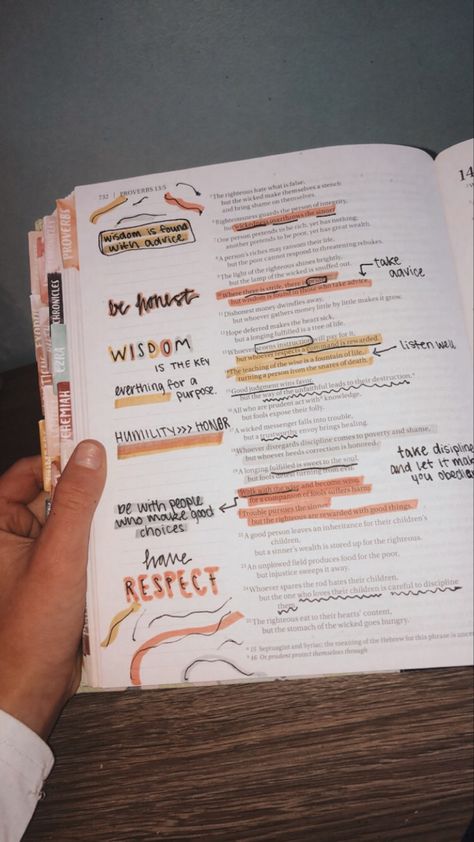 732 | PROVERBS 13:5
wisdom is found
with advice.
be honest
WISDOM
IS THE KEY
everthing for a
purpose.
HUMILITY >>> HONOR
be with people
who make good
choices
have
RESPECT
PROVERBS
CHRONICLES
EZRA
5 The righteous hate what is false,
but the wicked make themselves a stench
and bring shame on themselves.
6 Righteousness guards the person of integrity,
but wickedness overthrows the sinner.
7 One person pretends to be rich, yet has nothing;
another pretends to be poor, yet has great wealth.
8 A person's riches may ransom their life,
but the poor cannot respond to threatening rebukes.
9 The light of the righteous shines brightly,
but the lamp of the wicked is snuffed out.
10 Where there is strife, there is
but wisdom is found in those who take advice.
11 Dishonest money dwindles away,
but whoever gathers money little by little makes it grow.
12 Hope deferred makes the heart sick,
but a longing fulfilled is a tree of life.
13 Whoever scorns instruction will pay for it,
but whoever respects a command is rewarded.
14 The teaching of the wise is a fountain of life,
turning a person from the snares of death.
15 Good judgment wins favor,
but the way of the unfaithful leads to their destruction.
16 All who are prudent act with knowledge,
but fools expose their folly.
17 A wicked messenger falls into trouble,
but a trustworthy envoy brings healing.
18 Whoever disregards discipline comes to poverty and shame,
but whoever heeds correction is honored.
19 A longing fulfilled is sweet to the soul,
but fools detest turning from evil.
20 Walk with the wise and become wise,
for a companion of fools suffers harm.
21 Trouble pursues the sinner,
but the righteous are rewarded with good things.
22 A good person leaves an inheritance for their children's
children,
but a sinner's wealth is stored up for the righteous.
23 An unplowed field produces food for the poor,
but injustice sweeps it away.
24 Whoever spares the rod hates their children,
but the one who loves their children is careful to discipline
them.
25 The righteous eat to their hearts' content,
but the stomach of the wicked goes hungry.
a 15 Septuagint and Syriac; the meaning of the Hebrew for this phrase is
b 16 Or prudent protect themselves through
take
advice
listen well
take disipline
and let it make
you
14